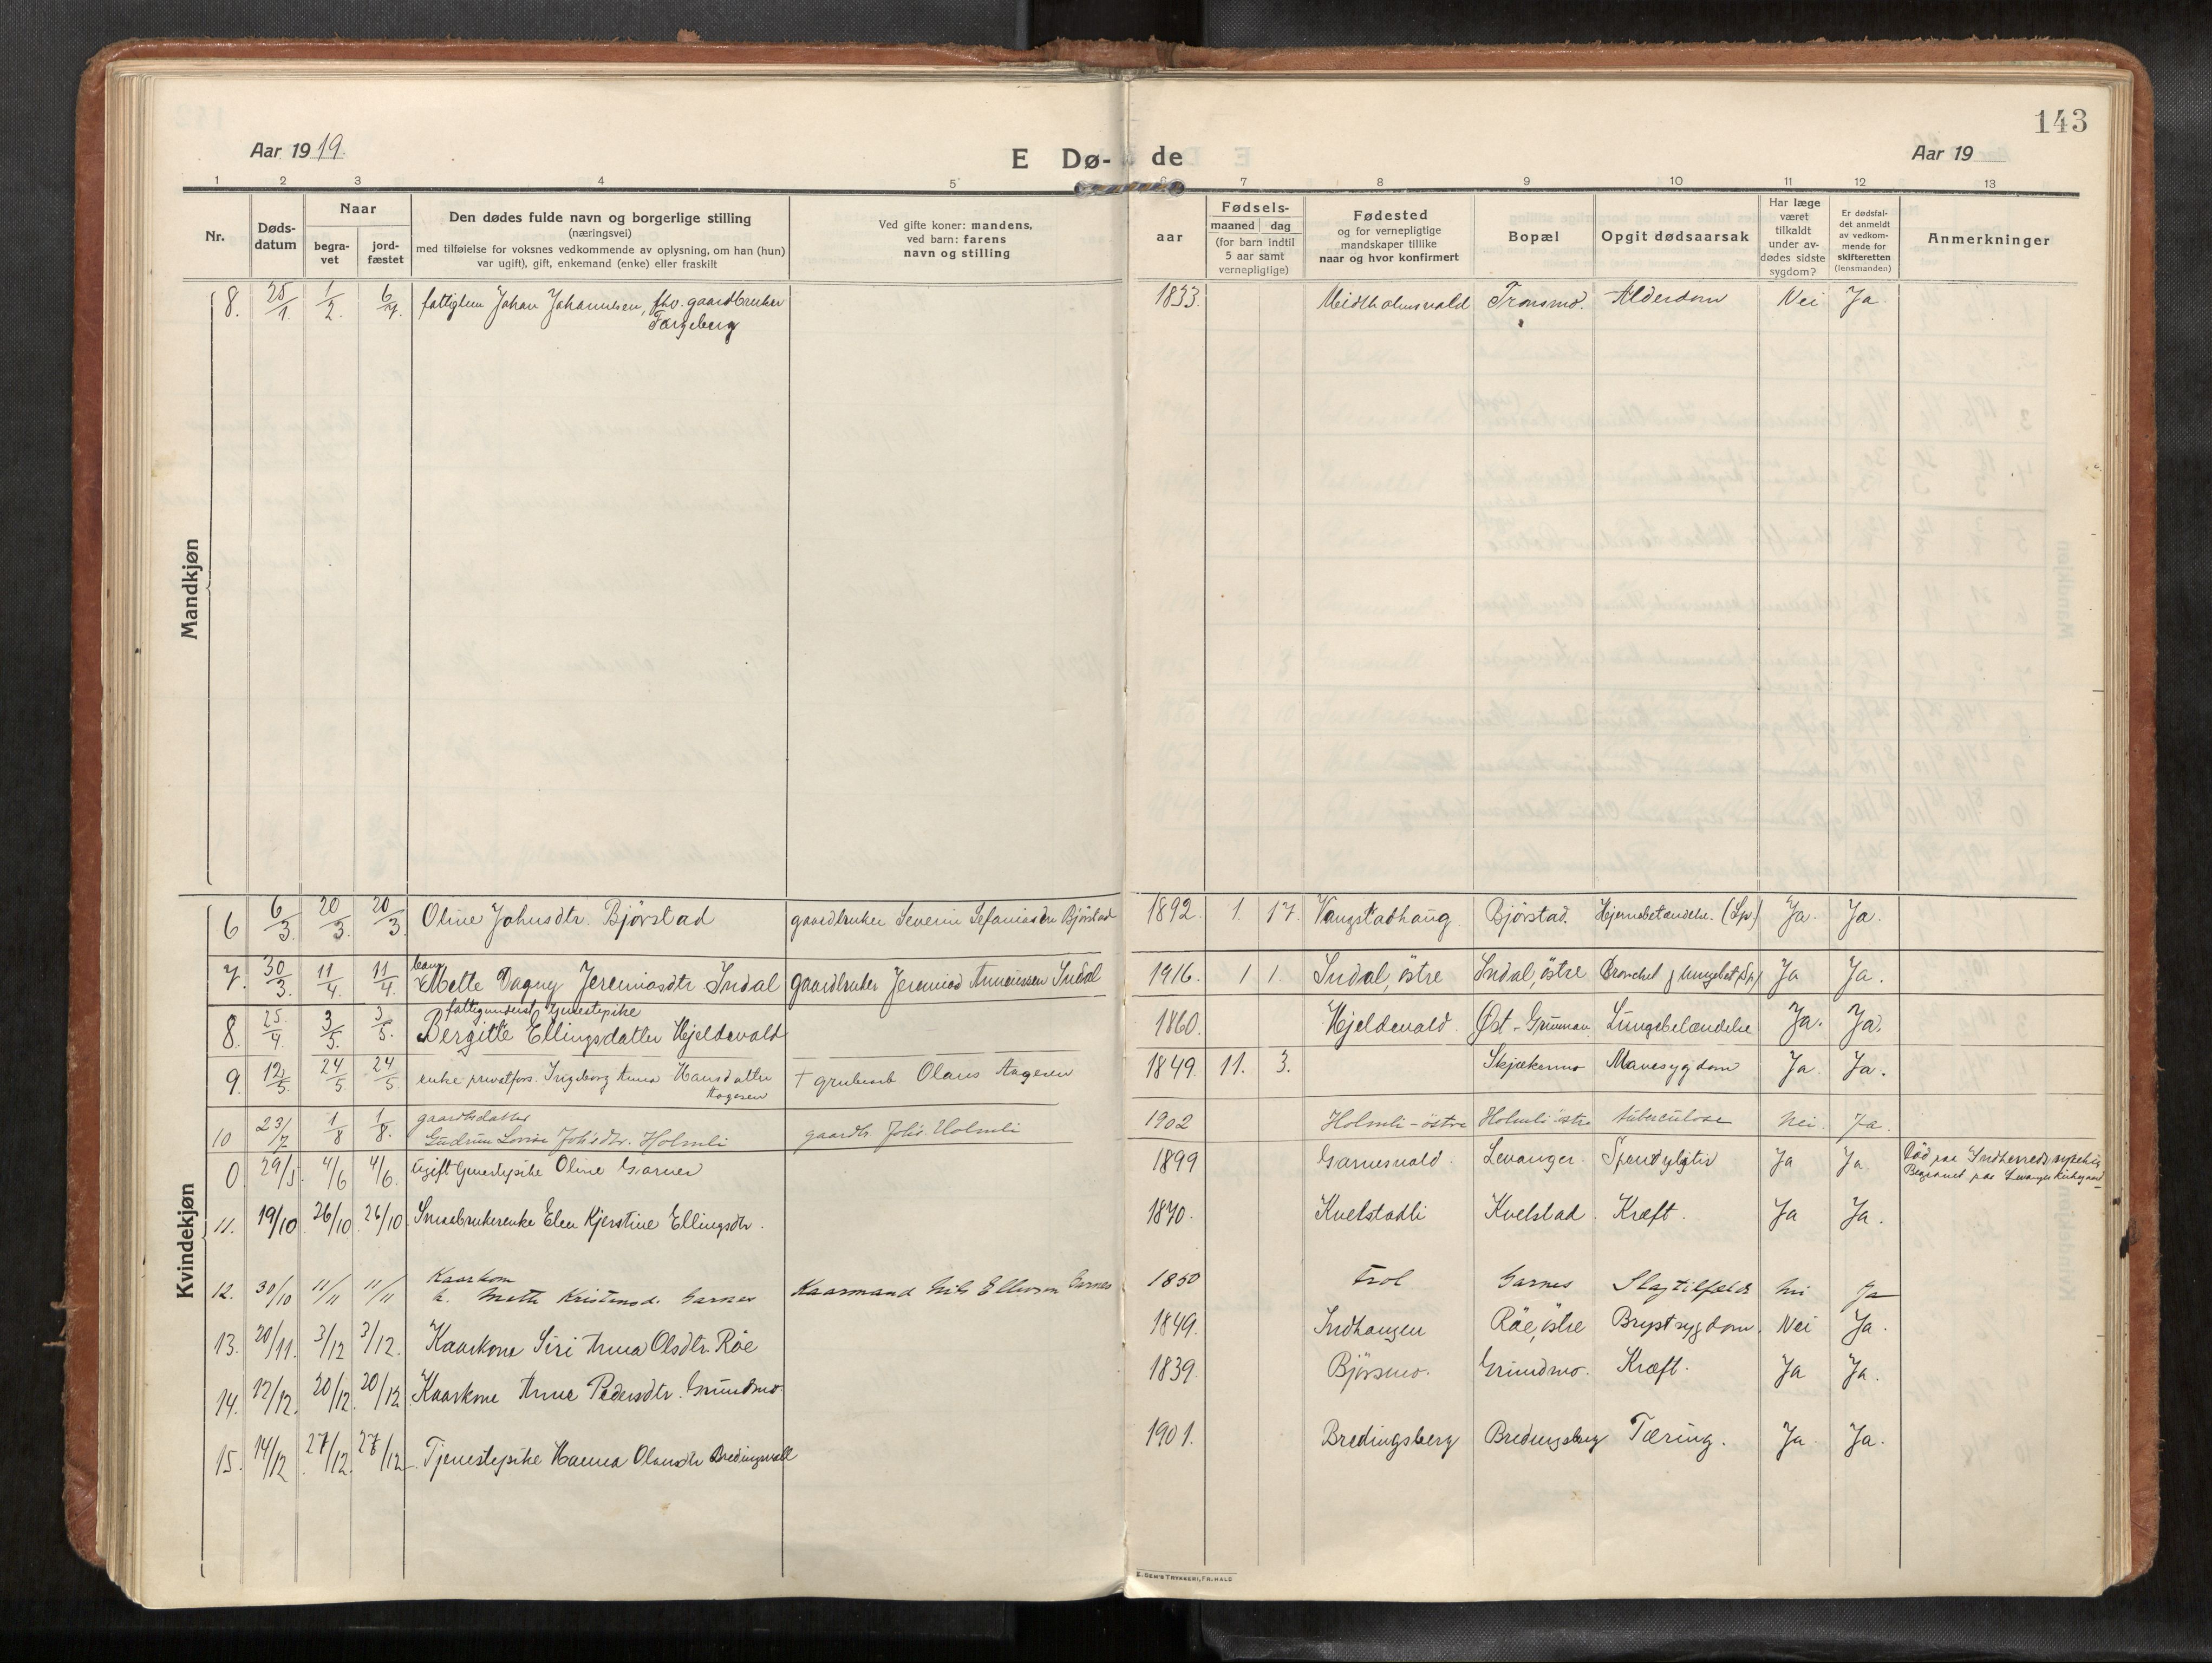 143
Aar 1919.
E Dø- de
Aar 19
1 2 3 4 5 6 7 8 9 10 11 12 13
Nr.
Døds-
datum
Naar
begra-
vet
jord-
fæstet
Den dødes fulde navn og borgerlige stilling
(næringsvei)
med tilføielse for voksnes vedkommende av oplysning, om han (hun)
var ugift), gift, enkemand (enke) eller fraskilt
Ved gifte koner: mandens,
ved barn: farens
navn og stilling
aar
Fødsels-
maaned dag
(for barn indtil
5 aar samt
vernepligtige)
Fødested
og for vernepligtige
mandskaper tillike
naar og hvor konfirmert
Bopæl
Opgit dødsaarsak
Har læge
været
tilkaldt
under av-
dødes sidste
sygdom?
Er dødsfal-
det anmeldt
av vedkom-
mende for
skifteretten
(lensmanden)
Anmerkninger
Mandkjøn
8. 25/1. 1/2. 6/4. fattiglem Johan Johannesen, fhv. gaardbruker 1833. Midtholmsvald Tronsmo. Alderdom Nei Ja.
Færgeberg
Kvindekjøn
6 6/3. 20/3. 20/3. Oline Johnsdtr. Bjørstad gaardbruker Severin Sefaniassen Bjørstad 1892 1. 17. Vangstadhaug Bjørstad. Hjernebetændelse. (Sp.) Ja. Ja.
barn
7. 30/3. 11/4. 11/4. Mette Dagny Jeremiasdtr. Indal gaardbruker Jeremias Indal 1916. 1 1. Indal, östre Indal, östre Ja Ja.
fattigunderst. tjenestepike
8. 25/4. 3/5. 3/5. Bergitte Ellingsdatter Hjeldevald 1860. Hjeldevald. Øst-Grunnan Lungebetændelse Ja. Ja.
9. 12/5. 24/5 24/5. enke privatfors. Ingeborg Anna Hansdatter † grubearb Olaus Aagesen 1849. 11. 3. Skjækermo Mavesygdom Ja. Ja.
Aagesen
gaardbdatter
10 23/7 1/8 1/8. Gudrun Lovise Joh'sdtr. Holmli gaardbr. Joh's. Holmli 1902 Holmli-östre Holmli östre tuberculose Nei. Ja.
0. 29/5 4/6 4/6. Ugift tjenestepike Oline Garnes 1899 Garnesvald. Levanger. Spondylytis Ja Ja. Död paa Indherreds sykehus
Begravet paa Levanger kirkegaard
11. 19/10 26/10 26/10 Smaabrukerenke Elen Kjerstine Ellingsdtr. 1870. Kvelstadli Kvelstad. Kræft. Ja Ja.
Kaarkone
12. 30/10 11/11 11/11 Mette Kristensd. Garnes Kaarmand Nils Ellevsen Garnes 1850 Trol Garnes Slagtilfælde Nei Ja
13. 20/11. 3/12 3/12. Kaarkone Siri Anna Olsdtr. Röe 1849. Indhaugen Röe, östre Brystsygdom. Nei Ja.
14. 12/12. 20/12. 20/12 Kaarkone Anne Pedersdtr. Grundmo. 1839. Bjørsmo. Grundmo. Kræft. Ja Ja.
15. 14/12 27/12. 27/12. Tjenestepike Hanna Olausdtr. Bredingsvald 1901. Bredingsberg Bredingsberg Tæring. Ja Ja.
E. SEM'S TRYKKERI, FR.HALD